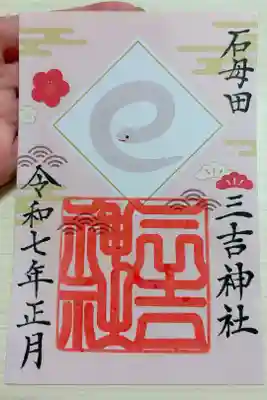 石母田
三吉神社
三吉神社
令和七年正月